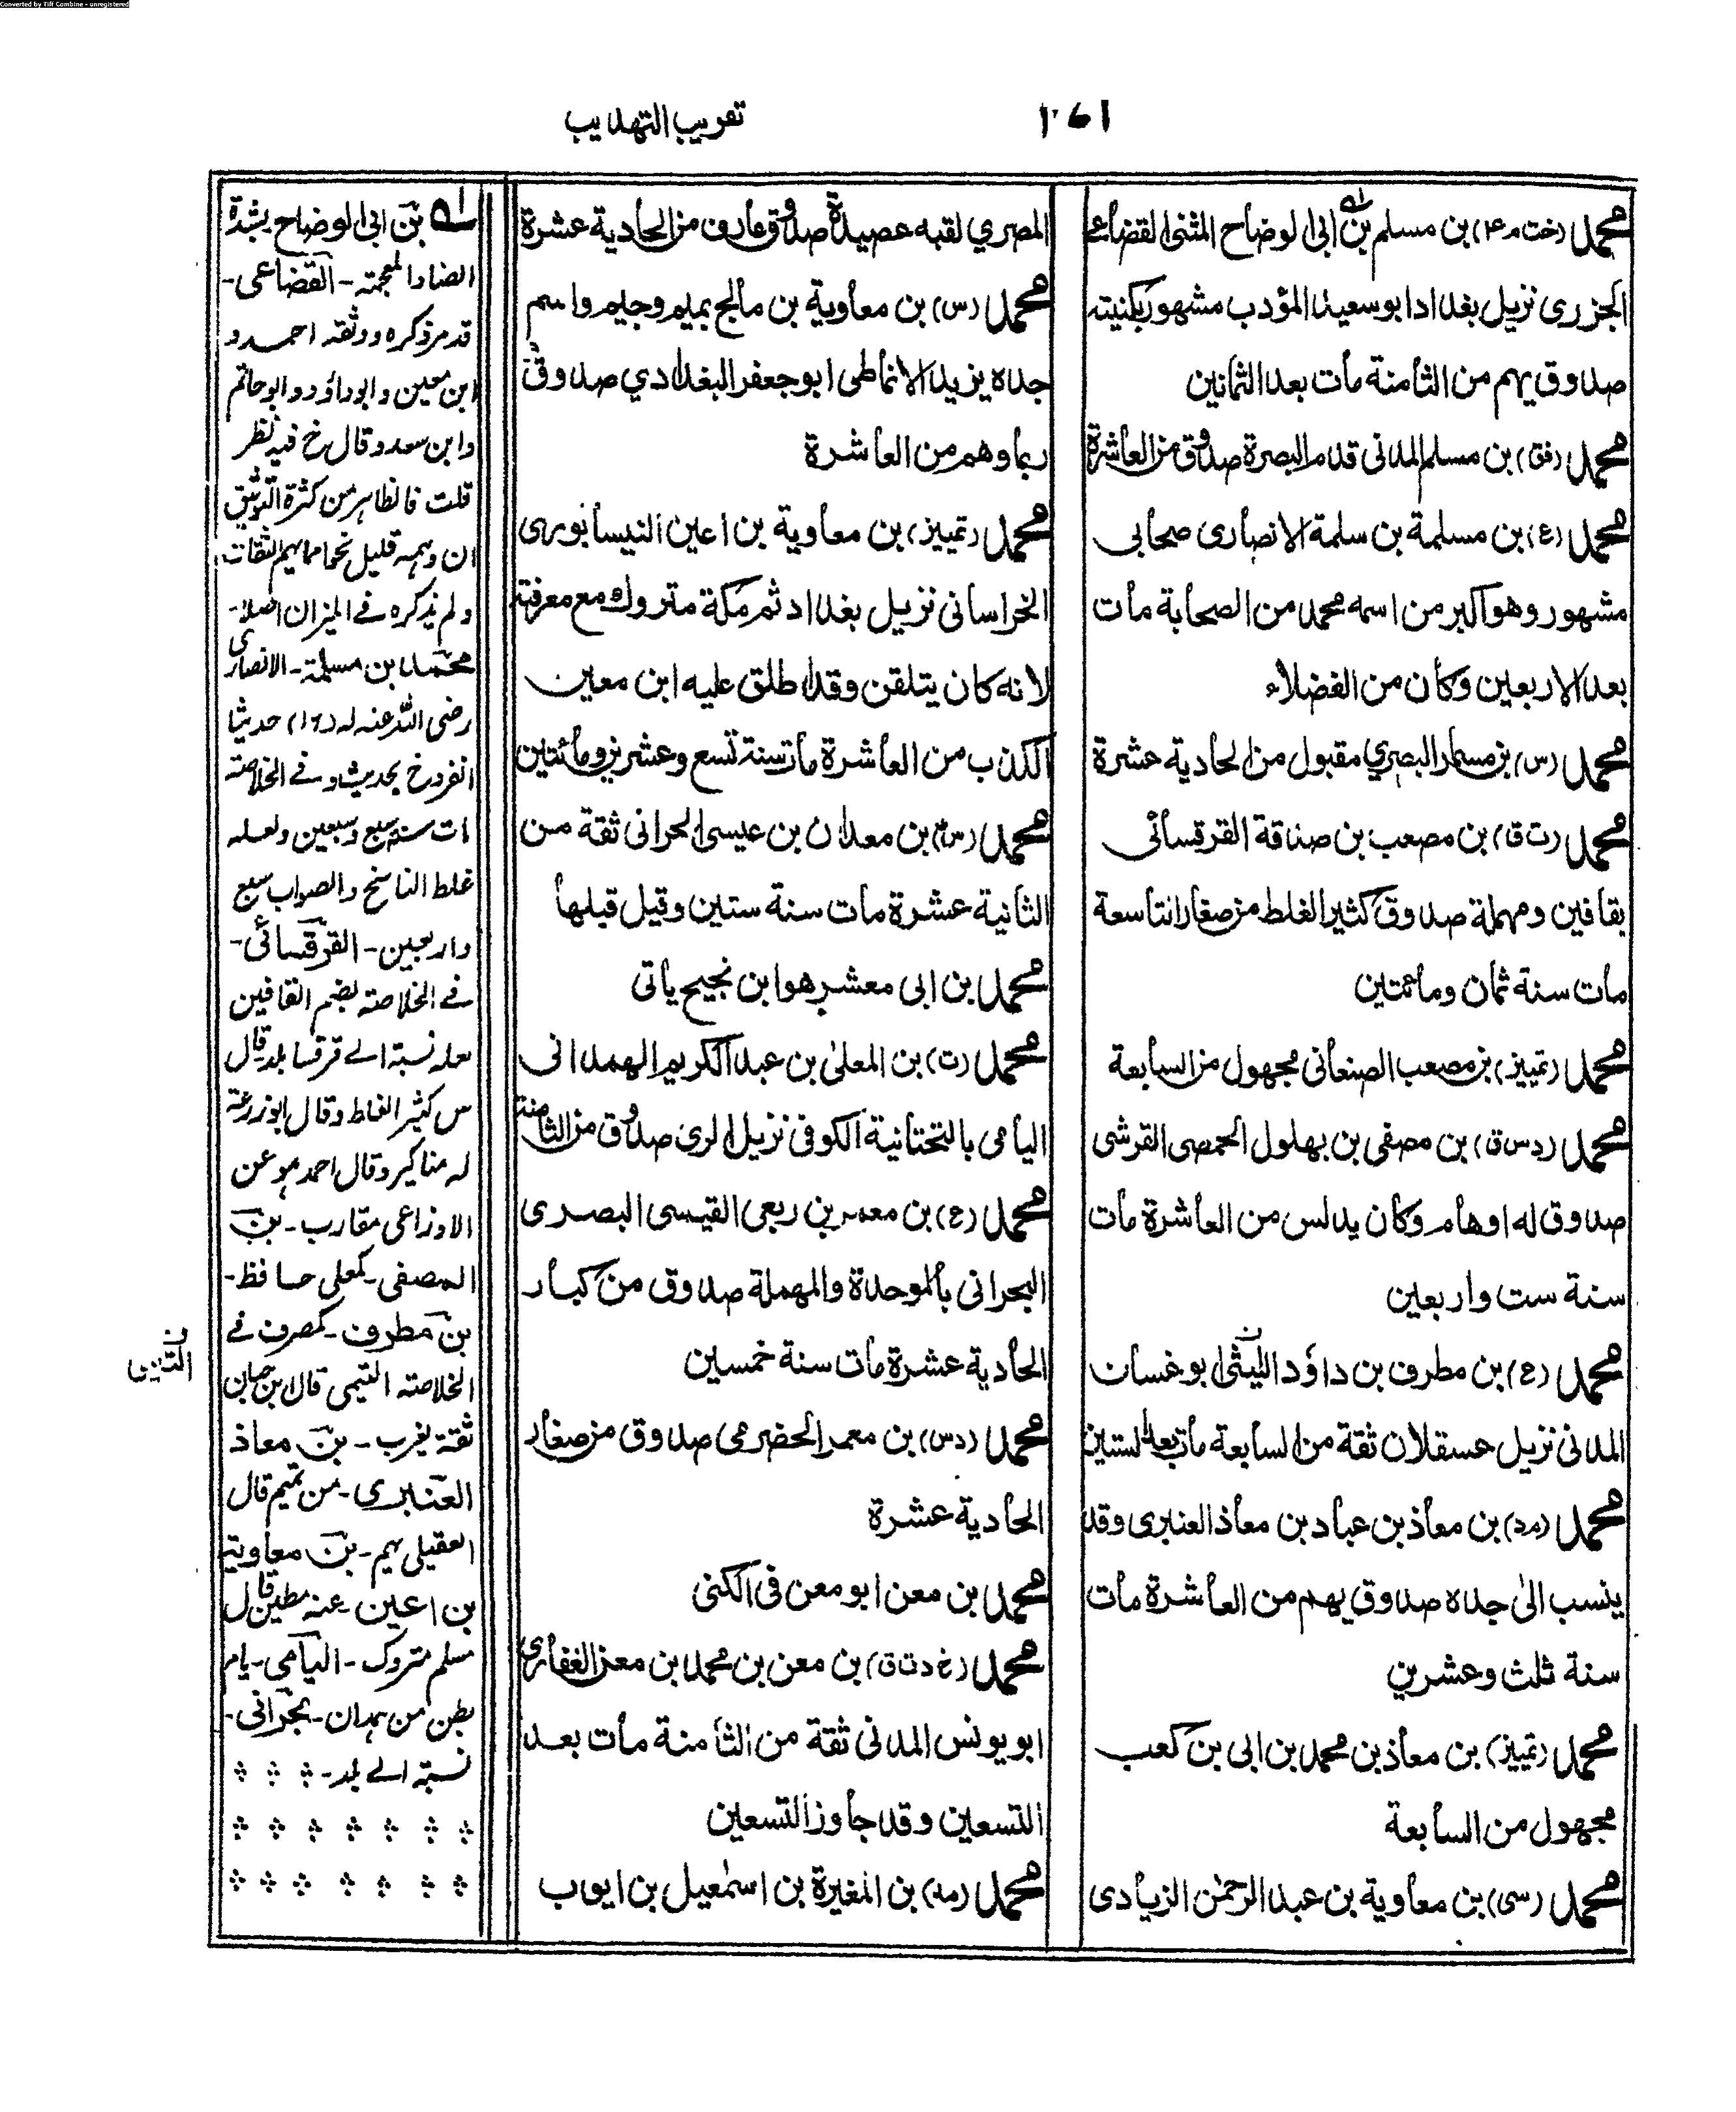 Converted by Tiff Combine - unregistered
تقريب التهذيب
محمد (خت م ۴) بن مسلم بن ابي الوضاح المثنى القضاعي
الجزري نزيل بغداد ابو سعيد المؤدب مشهور بكنيته
صدوق يهم من الثامنة مات بعد الثمانين
محمد (فق) بن مسلم المدني قدم البصرة صدوق من العاشرة
محمد (ع) بن مسلمة بن سلمة الانصارى صحابي
مشهور وهو اكبر من اسمه محمد من الصحابة مات
بعد الاربعين وكان من الفضلاء
محمد (س) بن مسمار البصري مقبول من الحادية عشرة
محمد (ت ق) بن مصعب بن صدقة القرقسائي
بقافين ومهملة صدوق كثير الغلط من صغار التاسعة
مات سنة ثمان ومائتين
محمد (تمييز) بن مصعب الصنعاني مجهول من السابعة
محمد (د س ق) بن مصفى بن بهلول الحمصي القرشي
صدوق له اوهام وكان يدلس من العاشرة مات
سنة ست واربعين
محمد (ع) بن مطرف بن داؤد الليثي ابو غسان
المدني نزيل عسقلان ثقة من السابعة مات بعد الستين
محمد (مد) بن معاذ بن عباد بن معاذ العنبرى وقد
ينسب الى جده صدوق يهم من العاشرة مات
سنة ثلث وعشرين
محمد (تمييز) بن معاذ بن محمد بن ابي بن كعب
مجهول من السابعة
محمد (سى) بن معاوية بن عبد الرحمن الزيادى
المصري لقبه عصيدة صدوق عارف من الحادية عشرة
محمد (س) بن معاوية بن مالج بميم وجيم واسم
جده يزيد الانماطي ابو جعفر البغدادي صدوق
ربما وهم من العاشرة
محمد (تمييز) بن معاوية بن اعين النيسابورى
الخراساني نزيل بغداد ثم مكة متروك مع معرفته
لانه كان يتلقن وقد اطلق عليه ابن معين
الكذب من العاشرة مات سنة تسع وعشرين ومائتين
محمد (س) بن معدان بن عيسى الحراني ثقة من
الثانية عشرة مات سنة ستين وقيل قبلها
محمد بن ابي معشر هو ابن نجيح ياتي
محمد (ت) بن المعلى بن عبد الكريم الهمداني
اليامي بالتحتانية الكوفي نزيل الرى صدوق من الثامنة
محمد (ع) بن معمر بن ربعي القيسي البصرى
البحراني بالموحدة والمهملة صدوق من كبار
الحادية عشرة مات سنة خمسين
محمد (د س) بن معمر الحضرمي صدوق من صغار
الحادية عشرة
محمد بن معن ابو معن في الكنى
محمد (خ د ت ق) بن معن بن محمد بن معن الغفاري
ابو يونس المدني ثقة من الثامنة مات بعد
التسعين وقد جاوز التسعين
محمد (مد) بن المغيرة بن اسمعيل بن ايوب
بن ابي الوضاح بشدة
الضاد المعجمة - القضاعي -
قد مر ذكره ووثقه احمد و
ابن معين وابو داؤد وابو حاتم
وابن سعد وقال خ فيه نظر
قلت فالظاهر من كثرة التوثيق
ان وهمه قليل نحوا مما يهم الثقات
ولم يذكره في الميزان اصلا -
محمد بن مسلمة - الانصارى
رضي الله عنه له (١٦) حديثا
انفرد خ بحديث وفي الخلاصة
مات سنة سبع وسبعين ولعله
غلط الناسخ والصواب سبع
واربعين - القرقسائي -
في الخلاصة بضم القافين
لعله نسبة الى قرقسا بلد قال
س كثير الغلط وقال ابو زرعة
له مناكير وقال احمد هو عن
الاوزاعي مقارب - بن
المصفى - كمعلى حافظ -
بن مطرف - كمصرف في
الخلاصة التيمي قال ابن حبان
ثقة يغرب - بن معاذ
العنبرى - من تميم قال
العقيلي يهم - بن معاوية
بن اعين - عنه مطين قال
مسلم متروك - اليامي - يام
بطن من همدان - بحراني -
نسبة الى بلد -